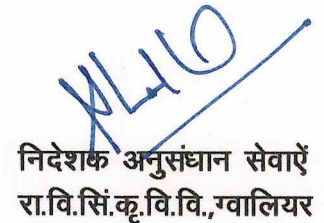 निदेशक अनुसंधान सेवाऐं
रा.वि.सिं.कृ.वि.वि.,ग्वालियर